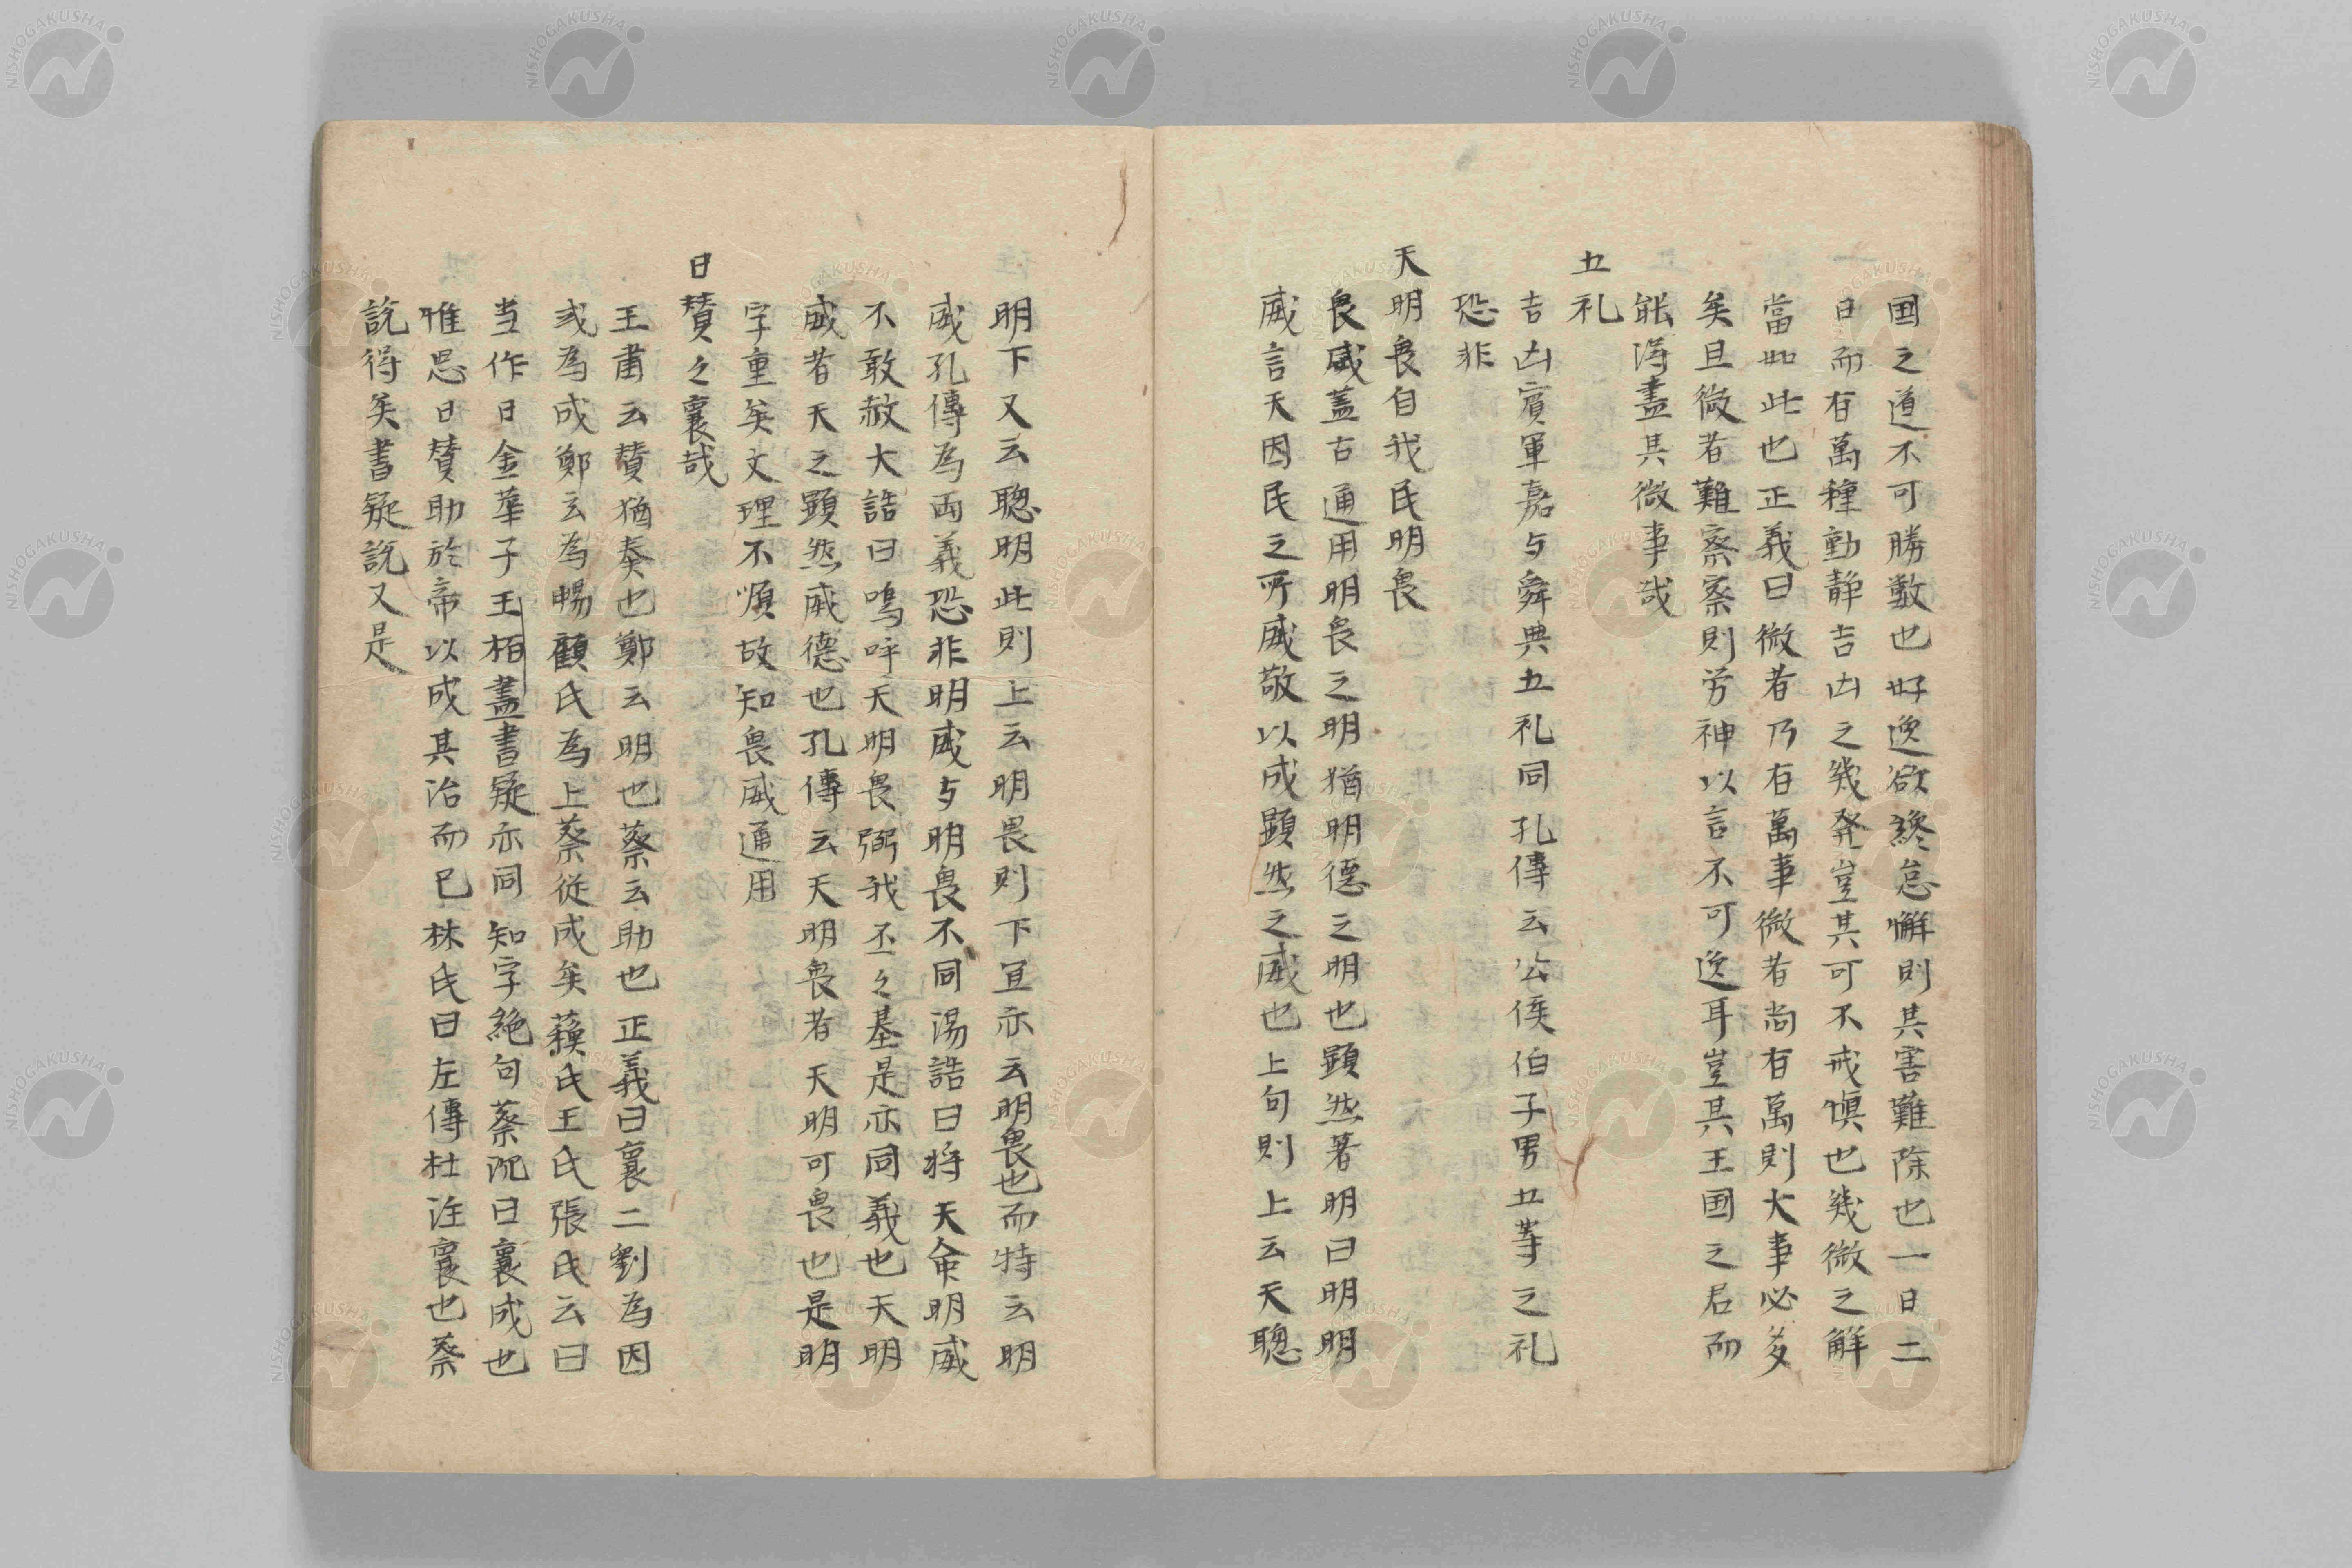 国之道不可勝数也好逸欲終怠懈則其害難除也一日二
日而有萬種動静吉凶之幾発豈其可不戒慎也幾微之解
當如此也正義曰微者乃有萬事微者尚有萬則大事必多
矣且微者難察察則労神以言不可逸耳豈其王国之君而
能得盡其微事哉
五礼
吉凶賓軍嘉与舜典五礼同孔傳云公侯伯子男五等之礼
恐非
天明畏自我民明畏
畏威蓋古通用明畏之明猶明德之明也顕然著明曰明明
威言天因民之所威敬以成顕然之威也上句則上云天聡
明下又云聡明此則上云明畏則下宜亦云明畏也而特云明
威孔傳為両義恐非明威与明畏不同湯誥曰将天命明威
不敢赦大誥曰嗚呼天明畏弼我丕々基是亦同義也天明
威者天之顕然威德也孔傳云天明畏者天明可畏也是明
字重矣文理不順故知畏威通用
曰賛々襄哉
王肅云賛猶奏也鄭云明也蔡云助也正義曰襄二劉為因
或為成鄭云為暢顧氏為上蔡従成矣蘓氏王氏張氏云曰
当作日金華子王栢盖書疑亦同知字絶句蔡沉曰襄成也
惟思日賛助於帝以成其治而已林氏曰左傳杜注襄也蔡
説得矣書疑説又是
NISHOGAKUSHA